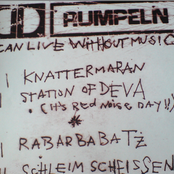 RUMPELN
CAN LIVE WITHOUT MUSIC
KNATTERMARAN
STATION OF DEVA
(It's Red Noise DAY!!)
*
RABARBABATZ
SCHLEIM SCHEISSEN